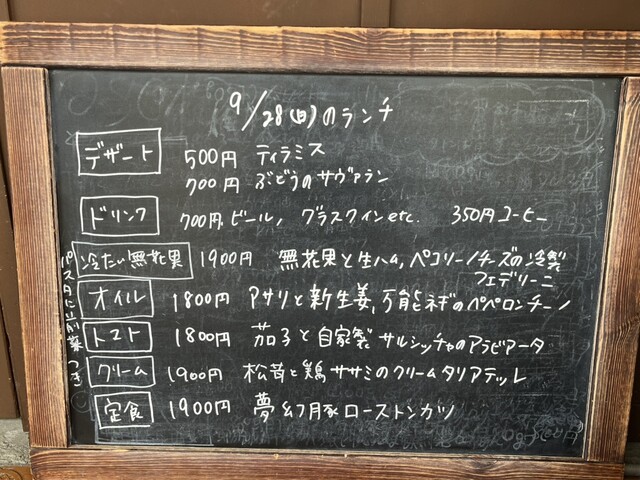 9/28(日)のランチ
デザート 500円 ティラミス
700円 ぶどうのサヴァラン
ドリンク 700円 ビール, グラスワインetc. 350円コーヒー
冷たい無花果 1900円 無花果と生ハム, ペコリーノチーズの冷製
フェデリーニ
オイル 1800円 アサリと新生姜, 万能ネギのペペロンチーノ
トマト 1800円 茄子と自家製サルシッチャのアラビアータ
クリーム 1900円 松茸と鶏ササミのクリームタリアテッレ
定食 1900円 夢幻豚ローストンカツ
パスタに前菜つき